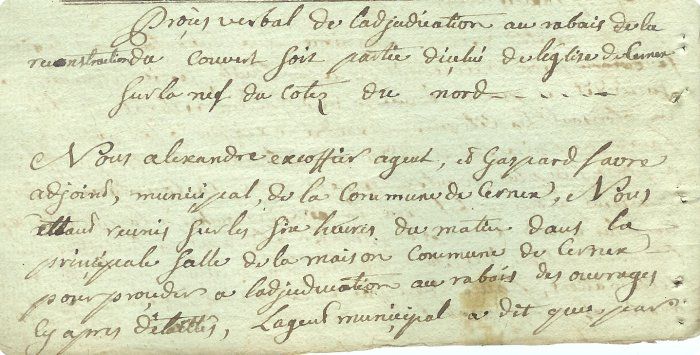 Proces verbal de ladjudication au rabais de la
reconstruction du couvert soit partie dicelui de leglise de Cernex
sur la nef du cotez du nord - - - -
Nous alexandre excoffier agent, et Gaspard favre
adjoint, municipal, de la Commune de Cernex, Nous
ettant reunis sur les six heures du matin dans la
principale salle de la maison Commune de Cernex
pour proceder a ladjudication au rabais des ouvrages
cy apres détaillés, Lagent municipal a dit que par